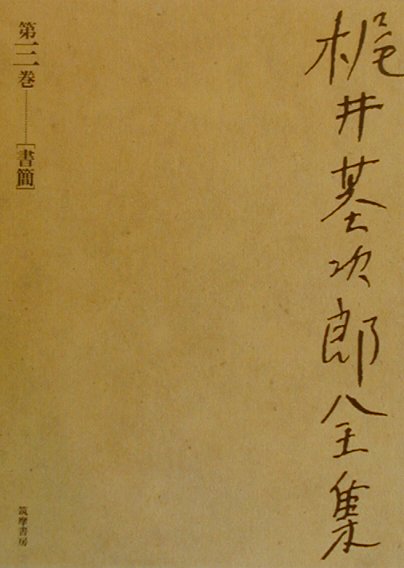 梶井基次郎全集
第三巻――[書簡]
筑摩書房